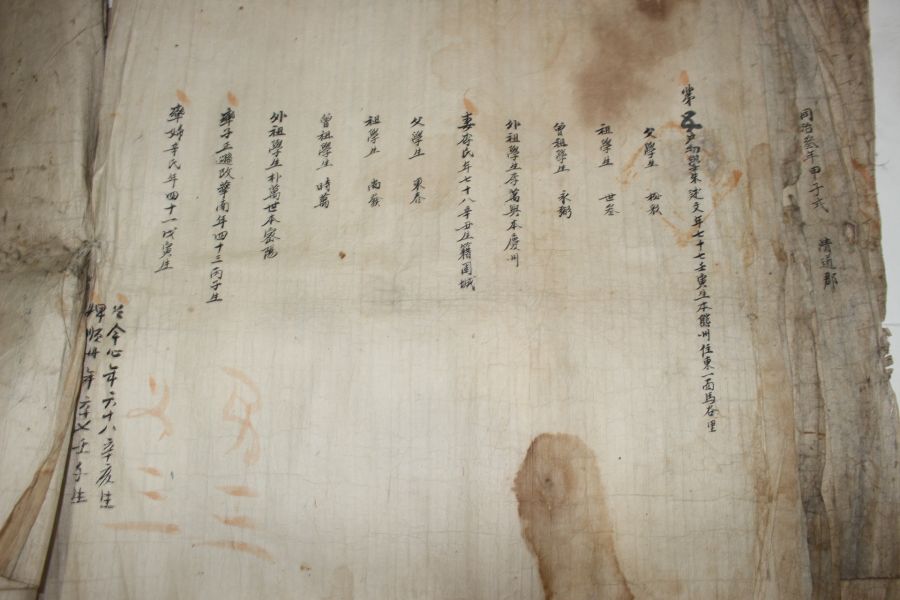 同治叄年甲子式 淸道郡
第五戶幼學朱建文年七十七壬寅生本熊州住東一面馬谷里
父學生
祖學生 世叄
曾祖學生 永弼
外祖學生李萬興本慶州
妻李氏年七十八辛丑生籍固城
父學生 東春
祖學生 尙義
曾祖學生 時萬
外祖學生朴萬世本密陽
率子 年四十三丙子生
率婦辛氏年四十一戊寅生
今心年六十八辛亥生
婢順卅年六十七壬子生
男三
女三